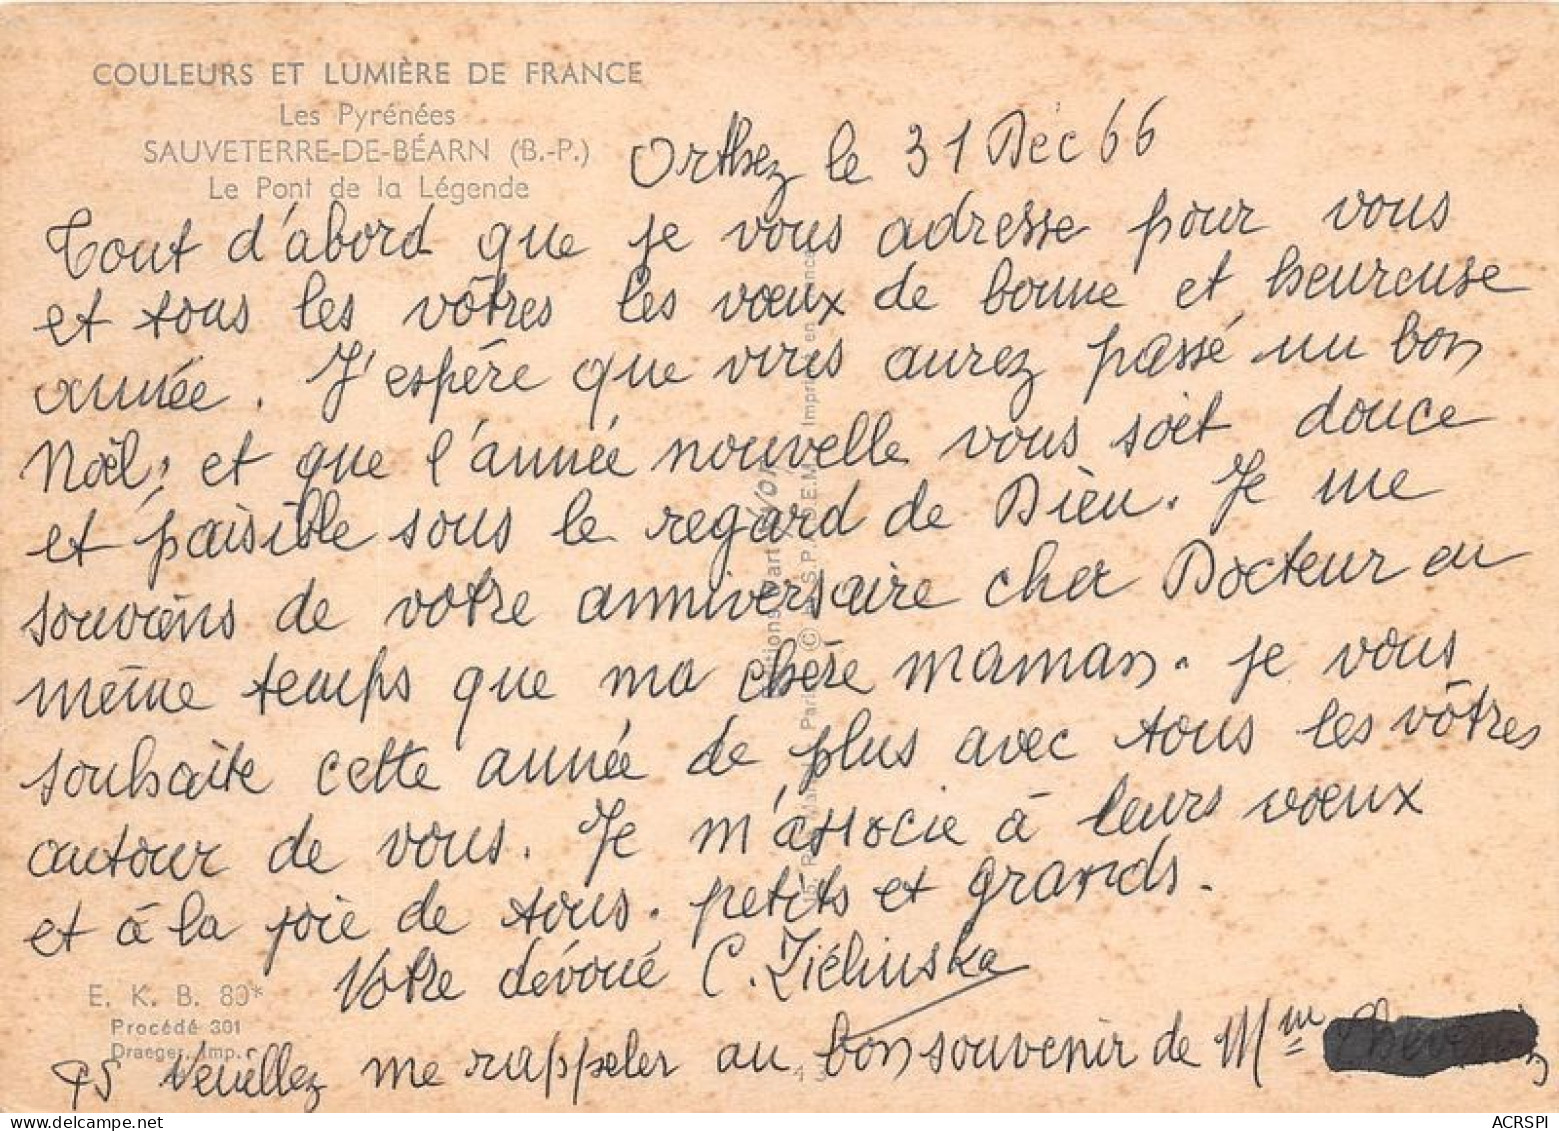 COULEURS ET LUMIÈRE DE FRANCE
Les Pyrénées
SAUVETERRE-DE-BÉARN (B.-P.)
Le Pont de la Légende
Orthez le 31 Déc 66
Tout d'abord que je vous adresse pour vous
et tous les vôtres les vœux de bonne et heureuse
année. J'espère que vous aurez passé un bon
Noël, et que l'année nouvelle vous soit douce
et paisible sous le regard de Dieu. Je me
souviens de votre anniversaire cher Docteur en
même temps que ma chère maman. je vous
souhaite cette année de plus avec tous les vôtres
autour de vous. Je m'associe à leurs vœux
et à la joie de tous. petits et grands.
Votre dévoué C. Ziélinska
E. K. B. 80*
Procédé 301
Draeger, Imp.
PS Veuillez me rappeler au bon souvenir de Mme
ACRSPI